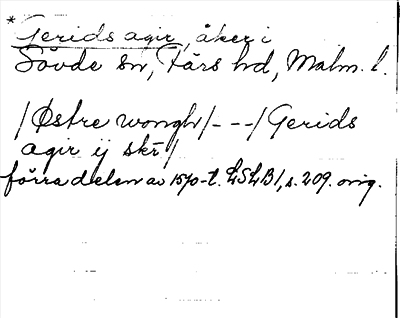 *Gerids agir, åker i
Sövde sn, Färs hd, Malm. l.
/Østre wongh/---/Gerids
agir ij skr/
förra delen av 1570-t. LSLB1, s. 209. orig.